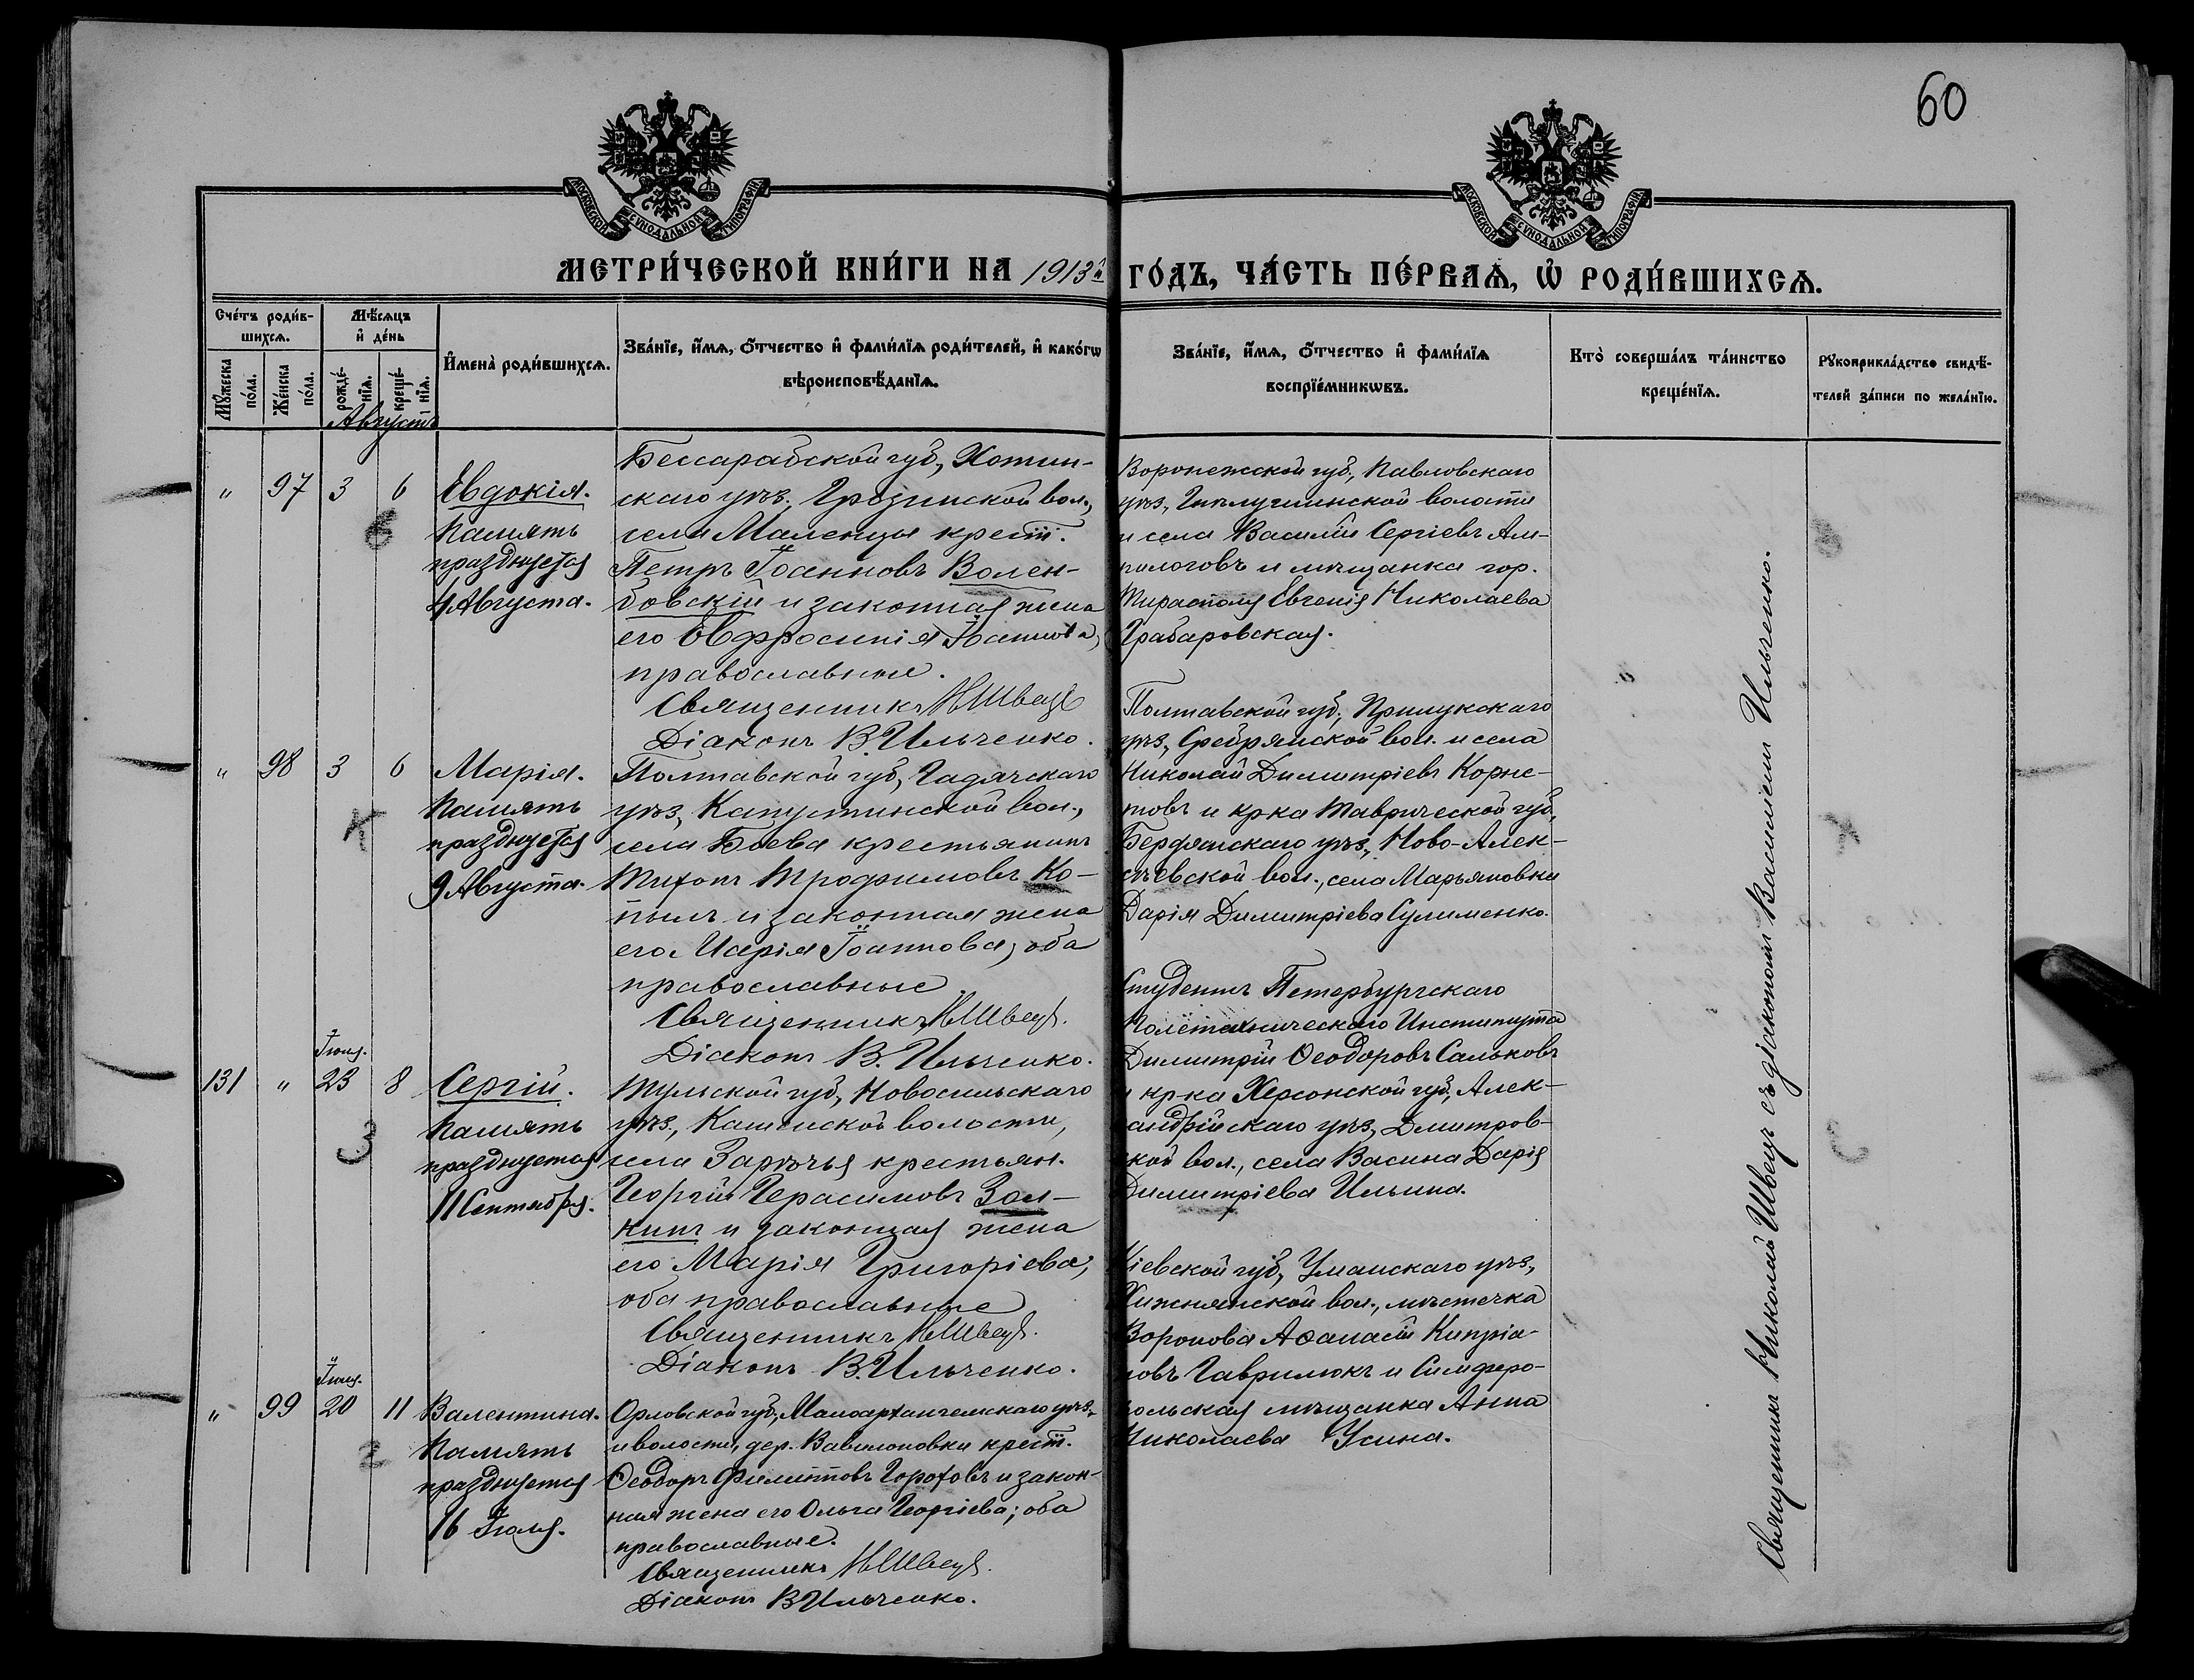 60
МОСКОВСКОЙ СѴНОДАЛЬНОЙ ТИПОГРАФІИ
МОСКОВСКОЙ СѴНОДАЛЬНОЙ ТИПОГРАФІИ
МЕТРИ́ЧЕСКОЙ КНИ́ГИ НА 1913й ГО́ДЪ, ЧА́СТЬ ПЕ́РВАѦ, Ѡ҆ РОДИ́ВШИХСѦ.
Сче́тъ роди́в-
шихсѧ.
Мꙋ́жеска по́ла.
Же́нска по́ла.
Мѣ́сѧцъ
и҆ де́нь
рожде́-нїѧ.
креще́-нїѧ.
И҆мена̀ роди́вшихсѧ.
Зва́нїе, и҆́мѧ, ѻ҆́тчество и҆ фами́лїѧ роди́телей, и҆ како́гѡ
вѣроисповѣ́данїѧ.
Зва́нїе, и҆́мѧ, ѻ҆́тчество и҆ фами́лїѧ
воспрїе́мникѡвъ.
Кто̀ соверша́лъ та́инство
креще́нїѧ.
Рꙋкоприкла́дство свидѣ́-
телей за́писи по жела́нїю.
Августъ
" 97 3 6
Евдокія.
Память
празднуется
4 Августа.
Бессарабской губ., Хотин-
скаго уѣз. Грозинской вол.,
села Маленцы крест.
Петръ Іоанновъ Волен-
бовскій и законная жена
его Евфросинія Іоаннова,
православные.
Священникъ Н Швецъ
Діаконъ В. Ильченко.
Воронежской губ., Павловскаго
уѣз., волости
и села Василій Сергіевъ Ам-
пилоговъ и мѣщанка гор.
Тирасполя Евгенія Николаева
Грабаровская.
" 98 3 6
К
Марія.
Память
празднуется
9 Августа.
Полтавской губ., Гадячскаго
уѣз., Капустинской вол.,
села Боева крестьянинъ
Тихонъ Трофимовъ Ко-
пылъ и законная жена
его Марія Іоаннова, оба
православные
Священникъ Н Швецъ.
Діаконъ В. Ильченко.
Полтавской губ., Прилукскаго
уѣз., Сребрянской вол. и села
Николай Димитріевъ Корне-
товъ и кр-ка Таврической губ.,
Бердянскаго уѣз., Ново-Алек-
сѣевской вол., села Марьяновки
Дарія Димитріева Сулименко.
Іюля.
131 " 23 8
З
Сергій.
Память
празднуется
11 Сентября.
Тульской губ., Новосильскаго
уѣз., Каменской волости,
села Зарѣчья крестьян.
Георгій Герасимовъ Зол-
кинъ и законная жена
его Марія Григоріева,
оба православные
Священникъ Н Швецъ.
Діаконъ В. Ильченко.
Студентъ Петербургскаго
Политехническаго Института
Димитрій Ѳеодоровъ Сальковъ
и кр-ка Херсонской губ., Алек-
сандрійскаго уѣз., Дмитров-
ской вол., села Васина Дарія
Димитріева Ильина.
Іюля.
" 99 20 11
Валентина.
Память
празднуется
16 Іюля.
Орловской губ., Малоархангельскаго уѣз.
и волости, дер. Вавилоновки крест.
Ѳеодоръ Филипповъ Гороховъ и закон-
ная жена его Ольга Георгіева; оба
православные.
Священникъ Н Швецъ.
Діаконъ В Ильченко.
Кіевской губ., Уманскаго уѣз.,
Хижнянской вол., мѣстечка
Воронова Аѳанасій Кипріа-
новъ Гаврилюкъ и Симферо-
польская мѣщанка Анна
Николаева Усина.
Священникъ Николай Швецъ съ діакономъ Василіемъ Ильченко.